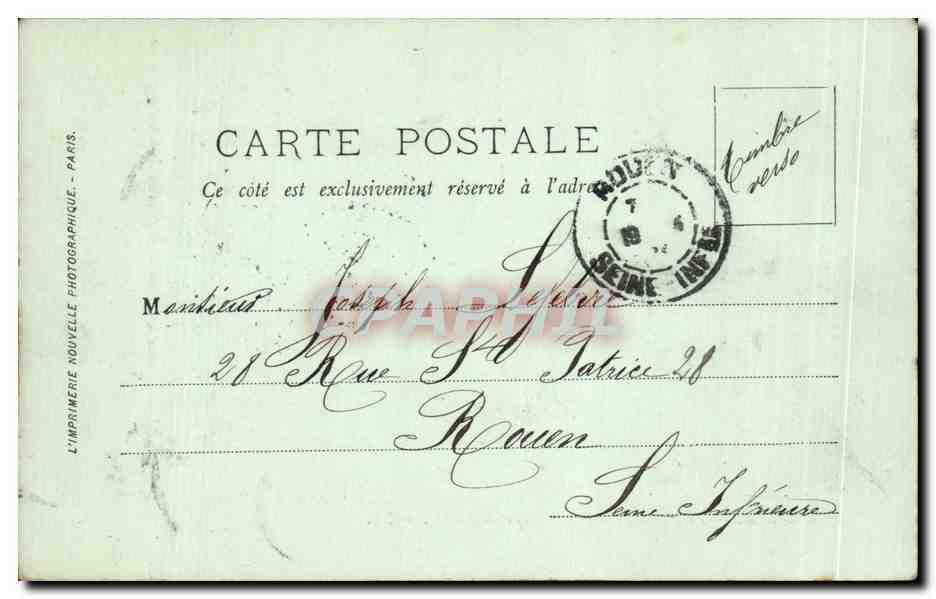 CARTE POSTALE
Ce côté est exclusivement réservé à l'adre
Timbre
verso
ROUEN
7
19
SEINE-INFRE
Monsieur Joseph Lefebvre
CPAPHIL
28 Rue St Patrice 28
Rouen
Seine Inférieure
L'IMPRIMERIE NOUVELLE PHOTOGRAPHIQUE. - PARIS.